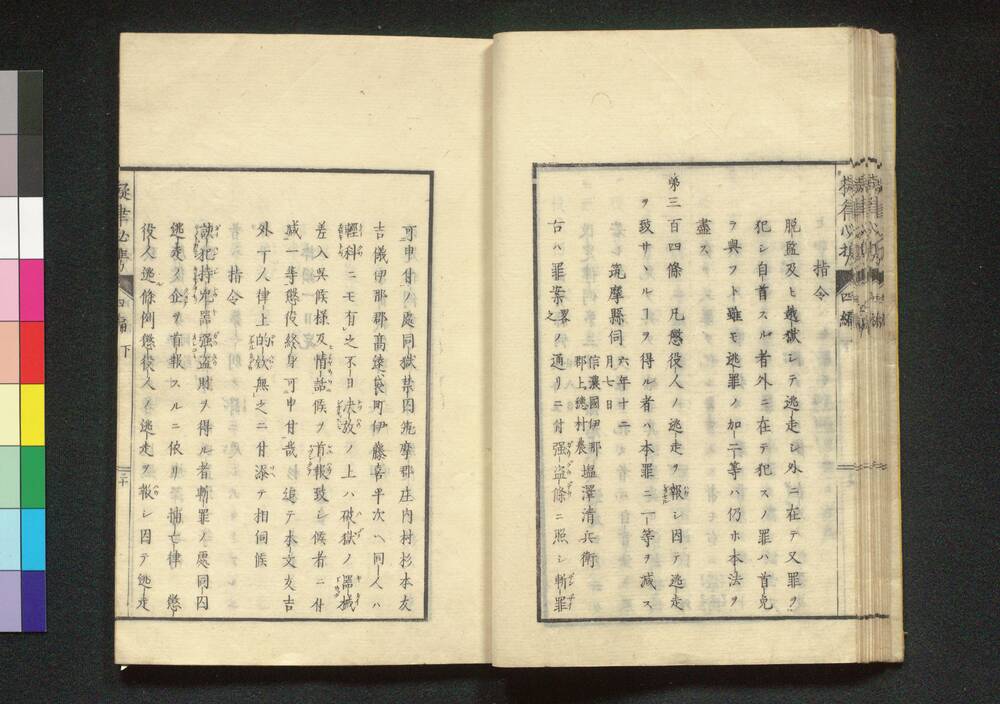 指令
脱監及ヒ越獄シテ逃走シ外ニ在テ又罪ヲ
犯シ自首スル者外ニ在テ犯スノ罪ハ首免
ヲ與フト雖モ逃罪ノ加二等ハ仍ホ本法ヲ
盡ス
第三百四條 凡懲役人ノ逃走ヲ報シ因テ逃走
ヲ致サヽルコヲ得ル者ハ本罪ニ一等ヲ減ス
筑摩縣伺 六年十二月七日
信濃國伊那郡上總村農 塩澤清兵衛
右ハ罪案畧之ノ通リニ付强盗條ニ照シ斬罪
可申付處同獄禁囚筑摩郡庄内村杉本友
吉儀伊那郡高遠袋町伊藤喜平次ヘ同人ハ
輕科ニモ有之不日決放ノ上ハ破獄ノ器械
差入呉候様及情話候ヲ首報致シ候者ニ付
減一等懲役終身可申付哉 追テ本文友吉
外一人律上的效無之ニ付添テ相伺候
指令
諒犯持兇器强盗財ヲ得ル者斬罪ノ處同囚
逃走ノ企ヲ首報スルニ依リ捕亡律 懲
役人逃條例懲役人ノ逃走ヲ報シ因テ逃走
擬律必携 四編 下